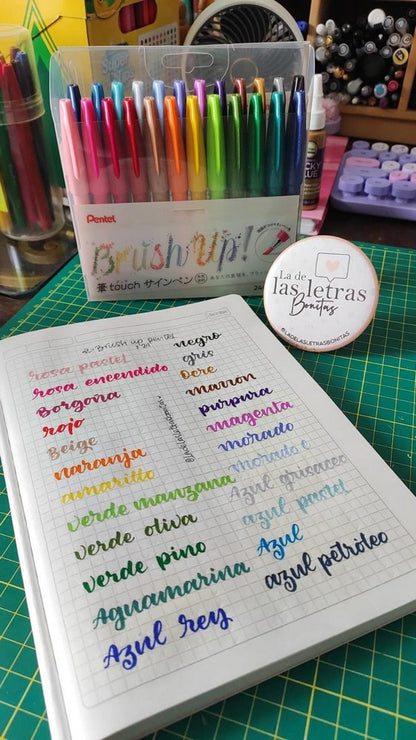 Pentel
Brush Up!
筆touch サインペン
La de
las letras
Bonitas
@LADELASLETRASBONITAS
Brush up pentel
rosa pastel
rosa encendido
Borgoña
rojo
Beige
naranja
amarillo
verde manzana
verde oliva
verde pino
Aguamarina
Azul rey
negro
gris
Ocre
marrón
púrpura
magenta
morado
morado c
Azul grisaceo
azul pastel
Azul
azul pétróleo